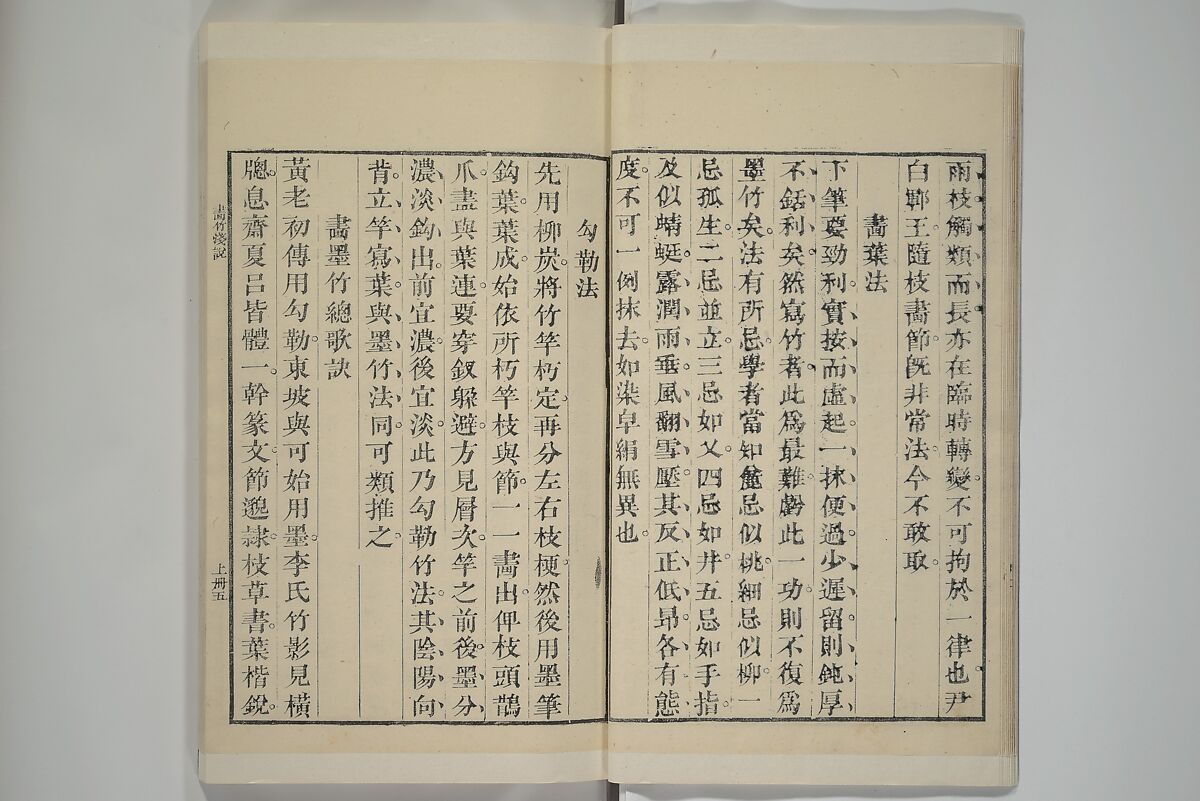 雨枝觸類而長亦在臨時轉變不可拘於一律也尹
白鄆王隨枝畵節旣非常法今不敢取
畵葉法
下筆要勁利實按而虛起一抹便過少遲留則鈍厚
不銛利矣然寫竹者此爲最難虧此一功則不復爲
墨竹矣法有所忌學者當知麄忌似桃細忌似柳一
忌孤生二忌並立三忌如叉四忌如井五忌如手指
及似蜻蜓露潤雨垂風翻雪壓其反正低昂各有態
度不可一例抹去如染皁絹無異也
勾勒法
先用柳炭將竹竿朽定再分左右枝梗然後用墨筆
鈎葉葉成始依所朽竿枝與節一一畵出俾枝頭鵲
爪盡與葉連要穿釵躱避方見層次竿之前後墨分
濃淡鈎出前宜濃後宜淡此乃勾勒竹法其陰陽向
背立竿寫葉與墨竹法同可類推之
畵墨竹總歌訣
黃老初傳用勾勒東坡與可始用墨李氏竹影見橫
牕息齋夏呂皆體一幹篆文節邈隷枝草書葉楷銳
畵竹淺說
上册五